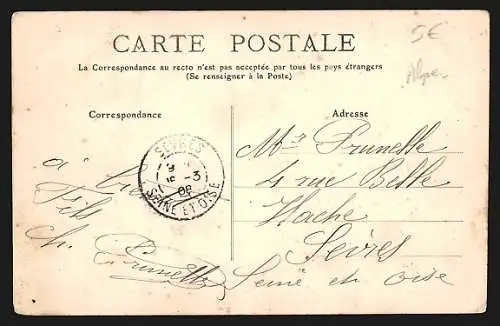 CARTE POSTALE
5€
La Correspondance au recto n'est pas acceptée par tous les pays étrangers
(Se renseigner à la Poste)
Correspondance
Adresse
SÈVRES
SEINE ET OISE
à
Fils
Ch. Prunelle
Mr Prunelle
4 rue Belle
Hache
Sèvres
Seine et oise